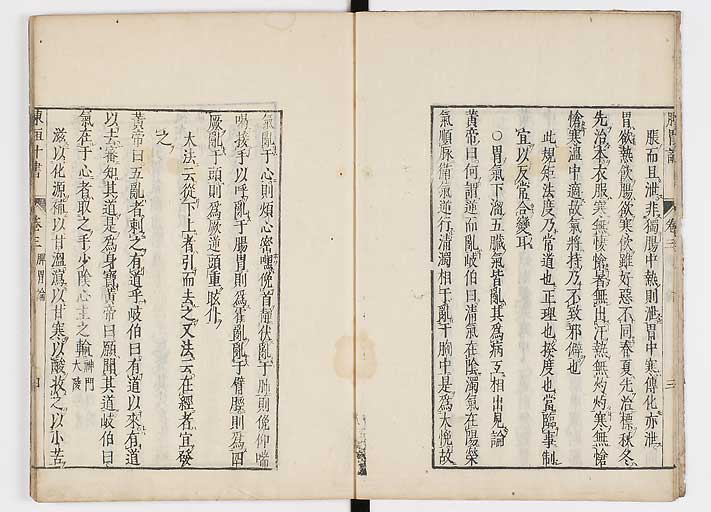 脾胃論 卷三 三
脹而且泄非獨腸中熱則泄胃中寒傳化亦泄
胃欲熱飲腸欲寒飲雖好惡不同春夏先治標秋冬
先治本衣服寒無悽愴暑無出汗熱無灼灼寒無愴
愴寒溫中適故氣將持乃不致邪僻也
此規矩法度乃常道也正理也揆度也當臨事制
宜以反常合變耳
○胃氣下溜五臟氣皆亂其為病互相出見論
黃帝曰何謂逆而亂岐伯曰清氣在陰濁氣在陽榮
氣順脉衛氣逆行清濁相干亂于胸中是為大悗故
氣亂于心則煩心密嘿俛首靜伏亂于肺則俛仰喘
喝接手以呼亂于腸胃則為霍亂亂于臂脛則為四
厥亂于頭則為厥逆頭重眩仆
大法云從下上者引而去之又法云在經者宜發
之
黃帝曰五亂者刺之有道乎岐伯曰有道以來有道
以去審知其道是為身寶黃帝曰願聞其道岐伯曰
氣在于心者取之手少陰心主之輸神門大陵
滋以化源補以甘溫瀉以甘寒以酸收之以小苦
東垣十書 卷三 脾胃論 四